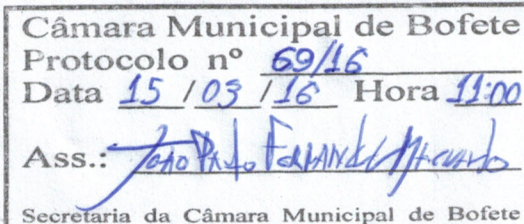 Câmara Municipal de Bofete
Protocolo nº 69/16
Data 15 / 03 / 16 Hora 11:00
Ass.: João Paulo Fernandes Machado
Secretaria da Câmara Municipal de Bofete